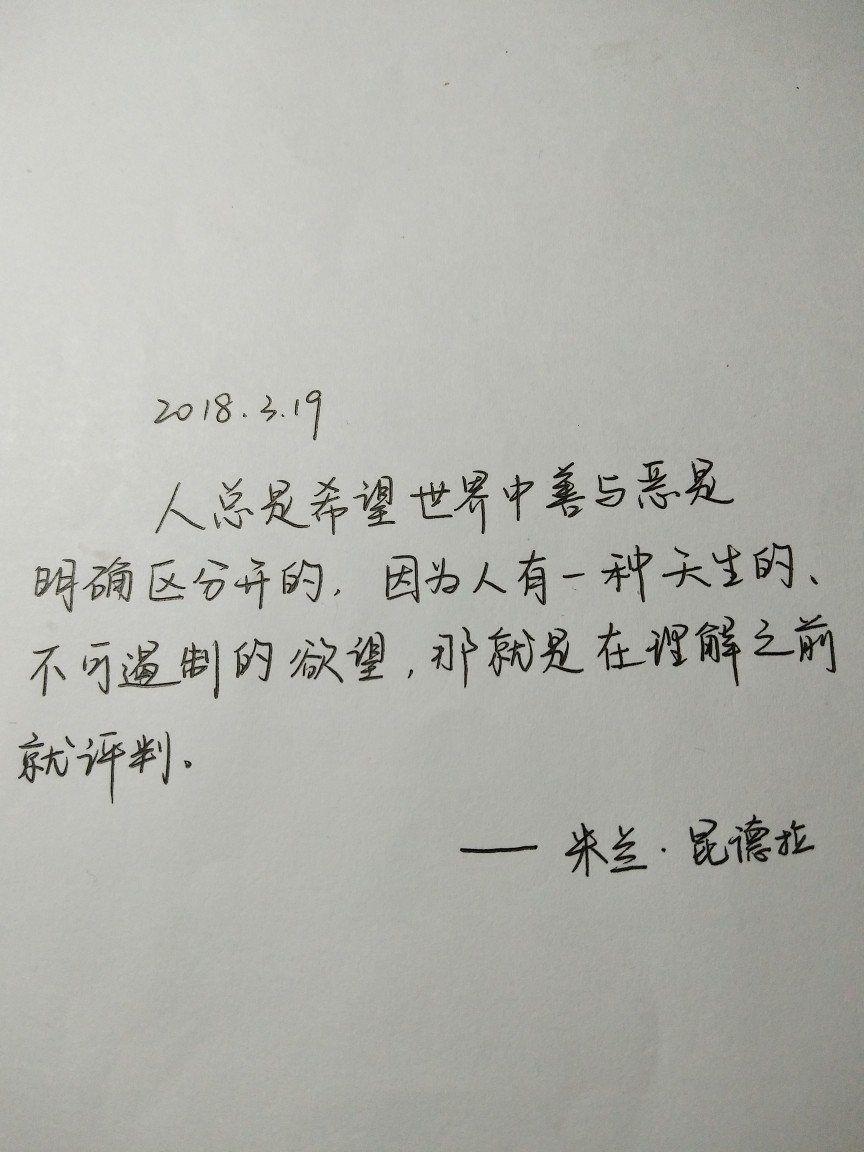 2018.3.19
人总是希望世界中善与恶是
明确区分开的，因为人有一种天生的、
不可遏制的欲望，那就是在理解之前
就评判。
—— 米兰·昆德拉